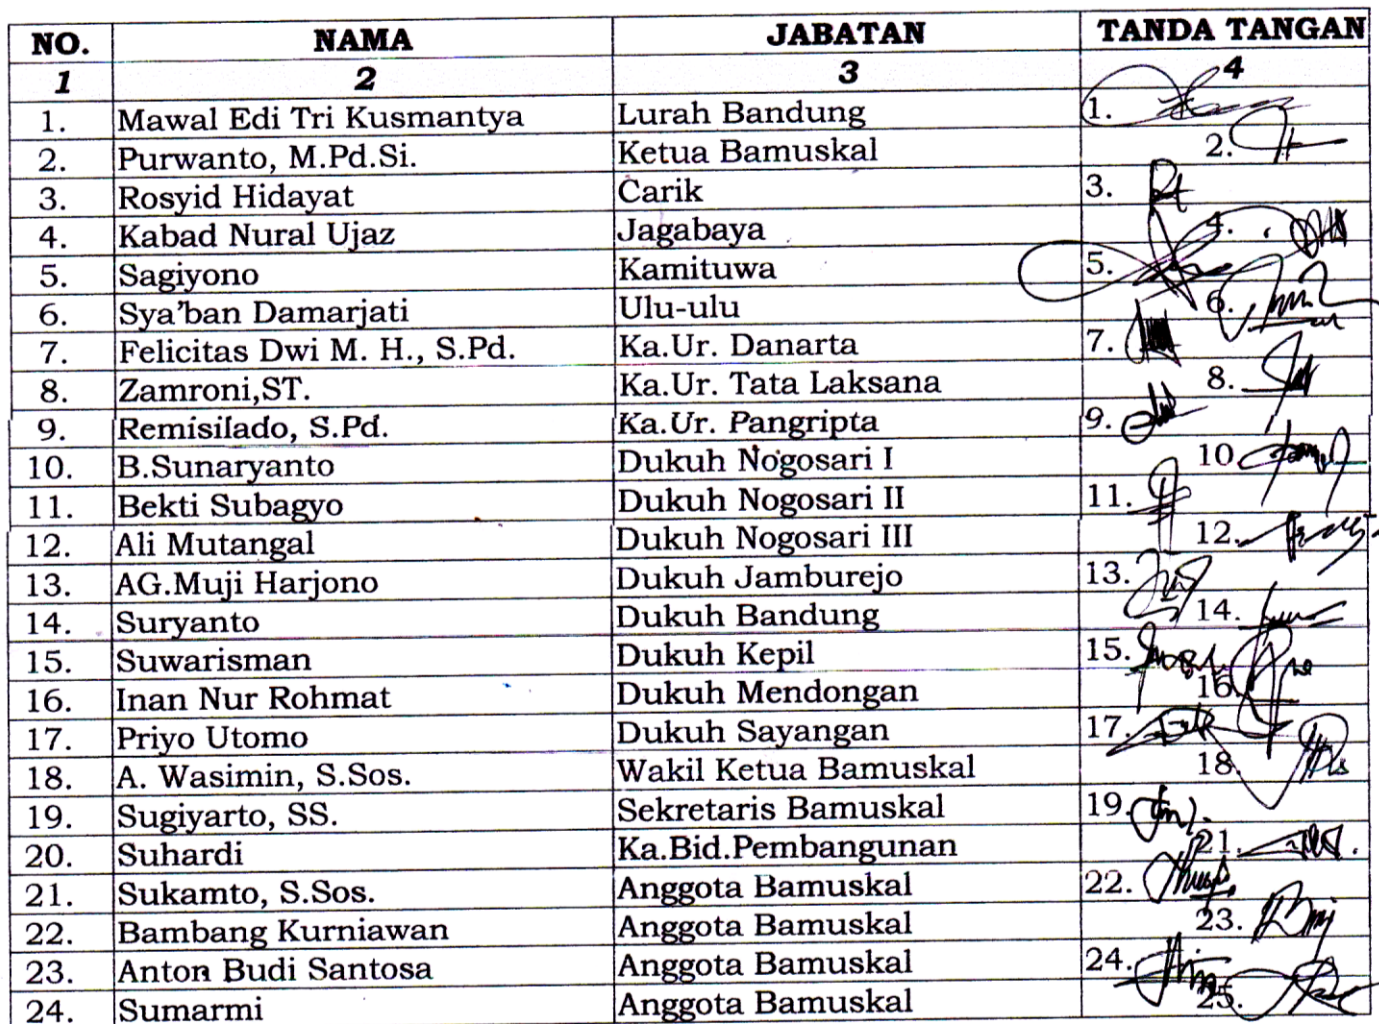 NO. NAMA JABATAN TANDA TANGAN
1 2 3 4
1. Mawal Edi Tri Kusmantya Lurah Bandung 1.
2. Purwanto, M.Pd.Si. Ketua Bamuskal 2.
3. Rosyid Hidayat Carik 3.
4. Kabad Nural Ujaz Jagabaya 4.
5. Sagiyono Kamituwa 5.
6. Sya'ban Damarjati Ulu-ulu 6.
7. Felicitas Dwi M. H., S.Pd. Ka.Ur. Danarta 7.
8. Zamroni,ST. Ka.Ur. Tata Laksana 8.
9. Remisilado, S.Pd. Ka.Ur. Pangripta 9.
10. B.Sunaryanto Dukuh Nogosari I 10
11. Bekti Subagyo Dukuh Nogosari II 11.
12. Ali Mutangal Dukuh Nogosari III 12.
13. AG.Muji Harjono Dukuh Jamburejo 13.
14. Suryanto Dukuh Bandung 14.
15. Suwarisman Dukuh Kepil 15.
16. Inan Nur Rohmat Dukuh Mendongan 16.
17. Priyo Utomo Dukuh Sayangan 17.
18. A. Wasimin, S.Sos. Wakil Ketua Bamuskal 18.
19. Sugiyarto, SS. Sekretaris Bamuskal 19.
20. Suhardi Ka.Bid.Pembangunan 21.
21. Sukamto, S.Sos. Anggota Bamuskal 22.
22. Bambang Kurniawan Anggota Bamuskal 23.
23. Anton Budi Santosa Anggota Bamuskal 24.
24. Sumarmi Anggota Bamuskal 25.